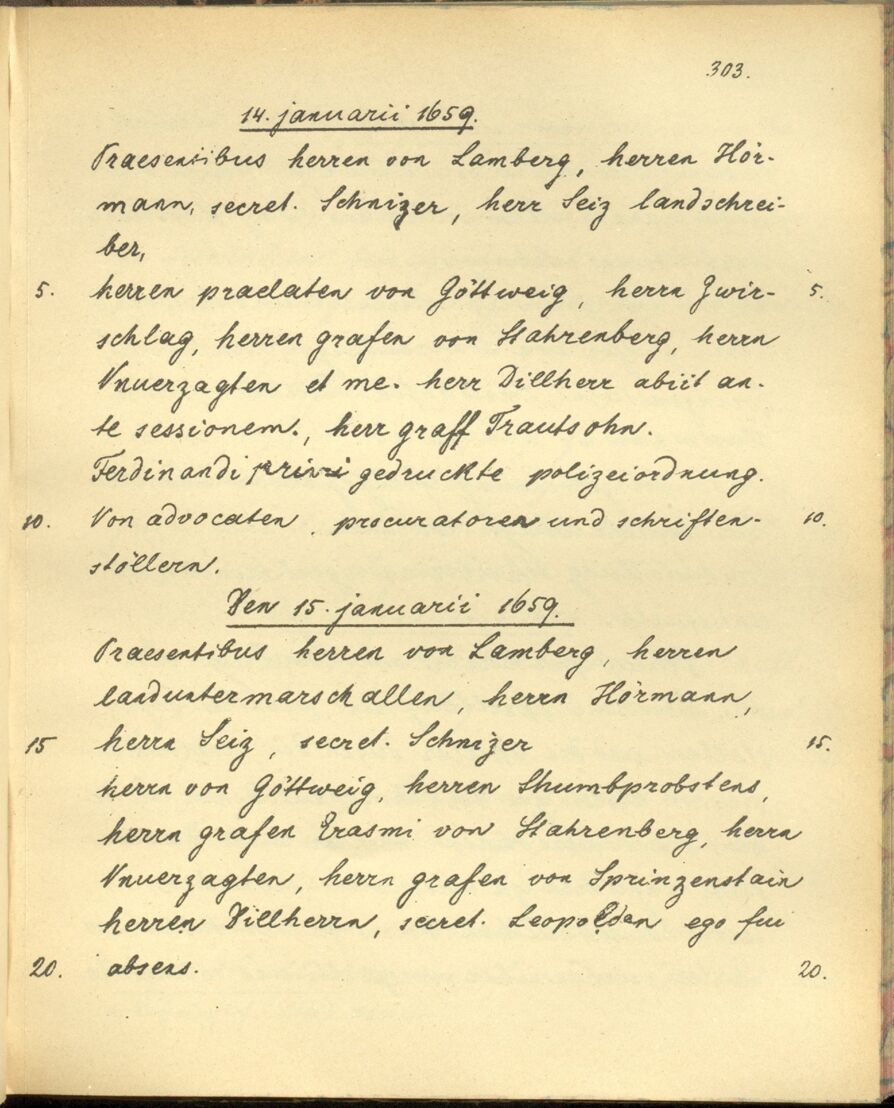 303.
14. januarii 1659.
Praesentibus herren von Lamberg, herren Hör-
mann, secret. Schnizer, herr Seiz landschrei-
ber,
5. herren praelaten von Göttweig, herrn Zwir- 5.
schlag, herren grafen von Stahrenberg, herrn
Vnuerzagten et me. herr Dillherr abiit an-
te sessionem., herr graff Trautsohn.
Ferdinandi primi gedruckte polizeiordnung.
10. Von advocaten, procuratoren und schriften- 10.
stöllern.
Den 15. januarii 1659.
Praesentibus herren von Lamberg, herren
landuntermarschallen, herrn Hörmann,
15 herrn Seiz, secret. Schnizer 15.
herrn von Göttweig, herren thumbprobstens,
herrn grafen Erasmi von Stahrenberg, herrn
Vnuerzagten, herrn grafen von Sprinzenstain
herren Dillherrn, secret. Leopolden ego fui
20. absens. 20.